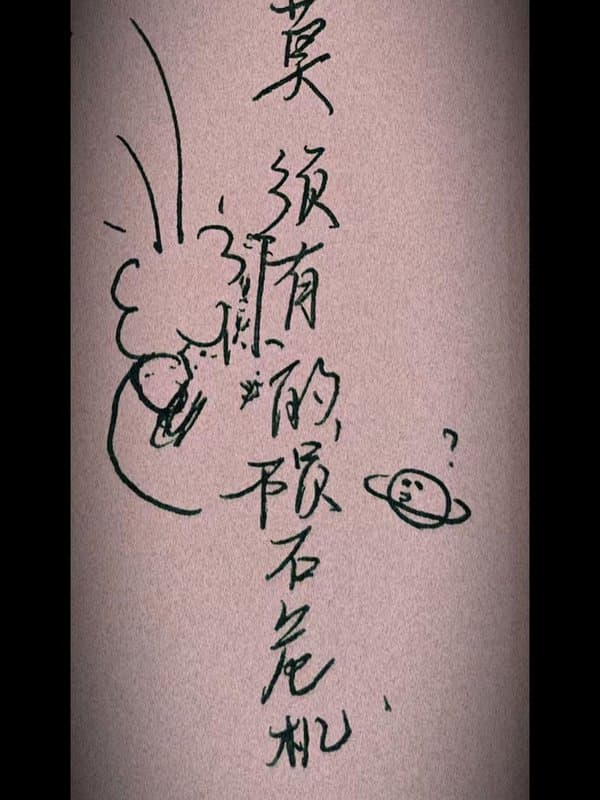 莫须有的陨石危机
?